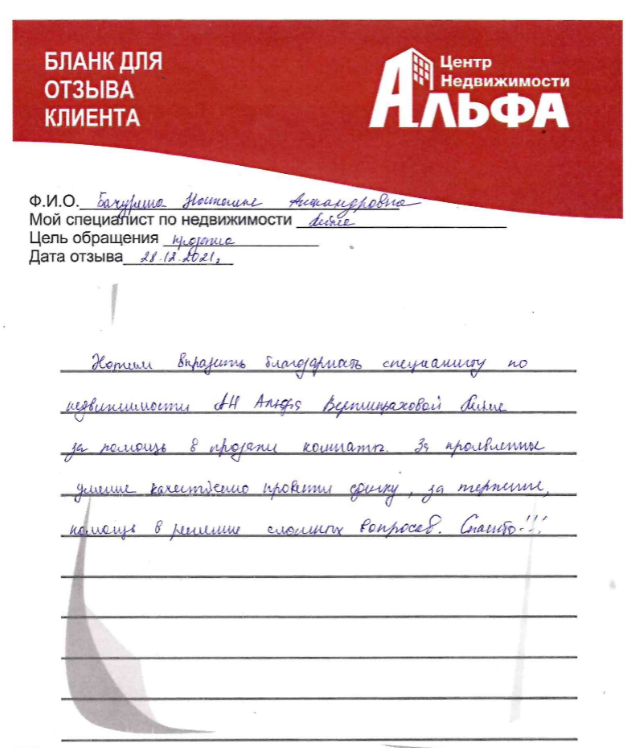 БЛАНК ДЛЯ
ОТЗЫВА
КЛИЕНТА
Центр
Недвижимости
АЛЬФА
Ф.И.О.
Мой специалист по недвижимости
Цель обращения продажа
Дата отзыва 28.12.2021г
Хотим выразить благодарность специалисту по
недвижимости АН Альфа
за помощь в продаже комнаты. За проявленные
умение качественно провести сделку, за терпение,
помощь в решение сложных вопросов. Спасибо!!!